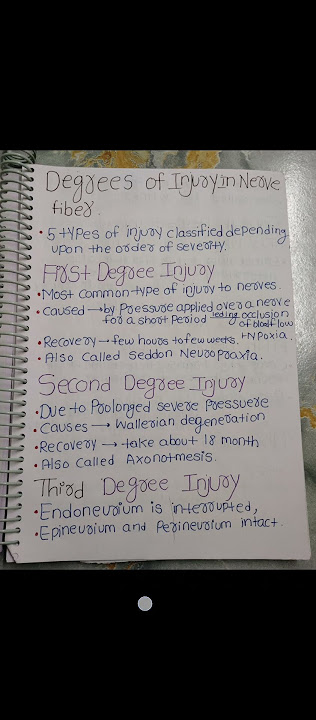 Degrees of Injury in Nerve
fiber.
• 5 types of injury classified depending
upon the order of severity.
First Degree Injury
• Most common type of injury to nerves.
• Caused → by Pressure applied over a nerve
for a short Period leading occlusion
of blood flow
• Recovery → few hours to few weeks. + Hypoxia.
• Also Called Seddon Neuropraxia.
Second Degree Injury
• Due to Prolonged severe pressuere
• Causes → Wallerian degeneration
• Recovery → take about 18 month
• Also Called Axonotmesis.
Third Degree Injury
• Endoneurium is interrupted,
• Epineurium and Perineurium intact.